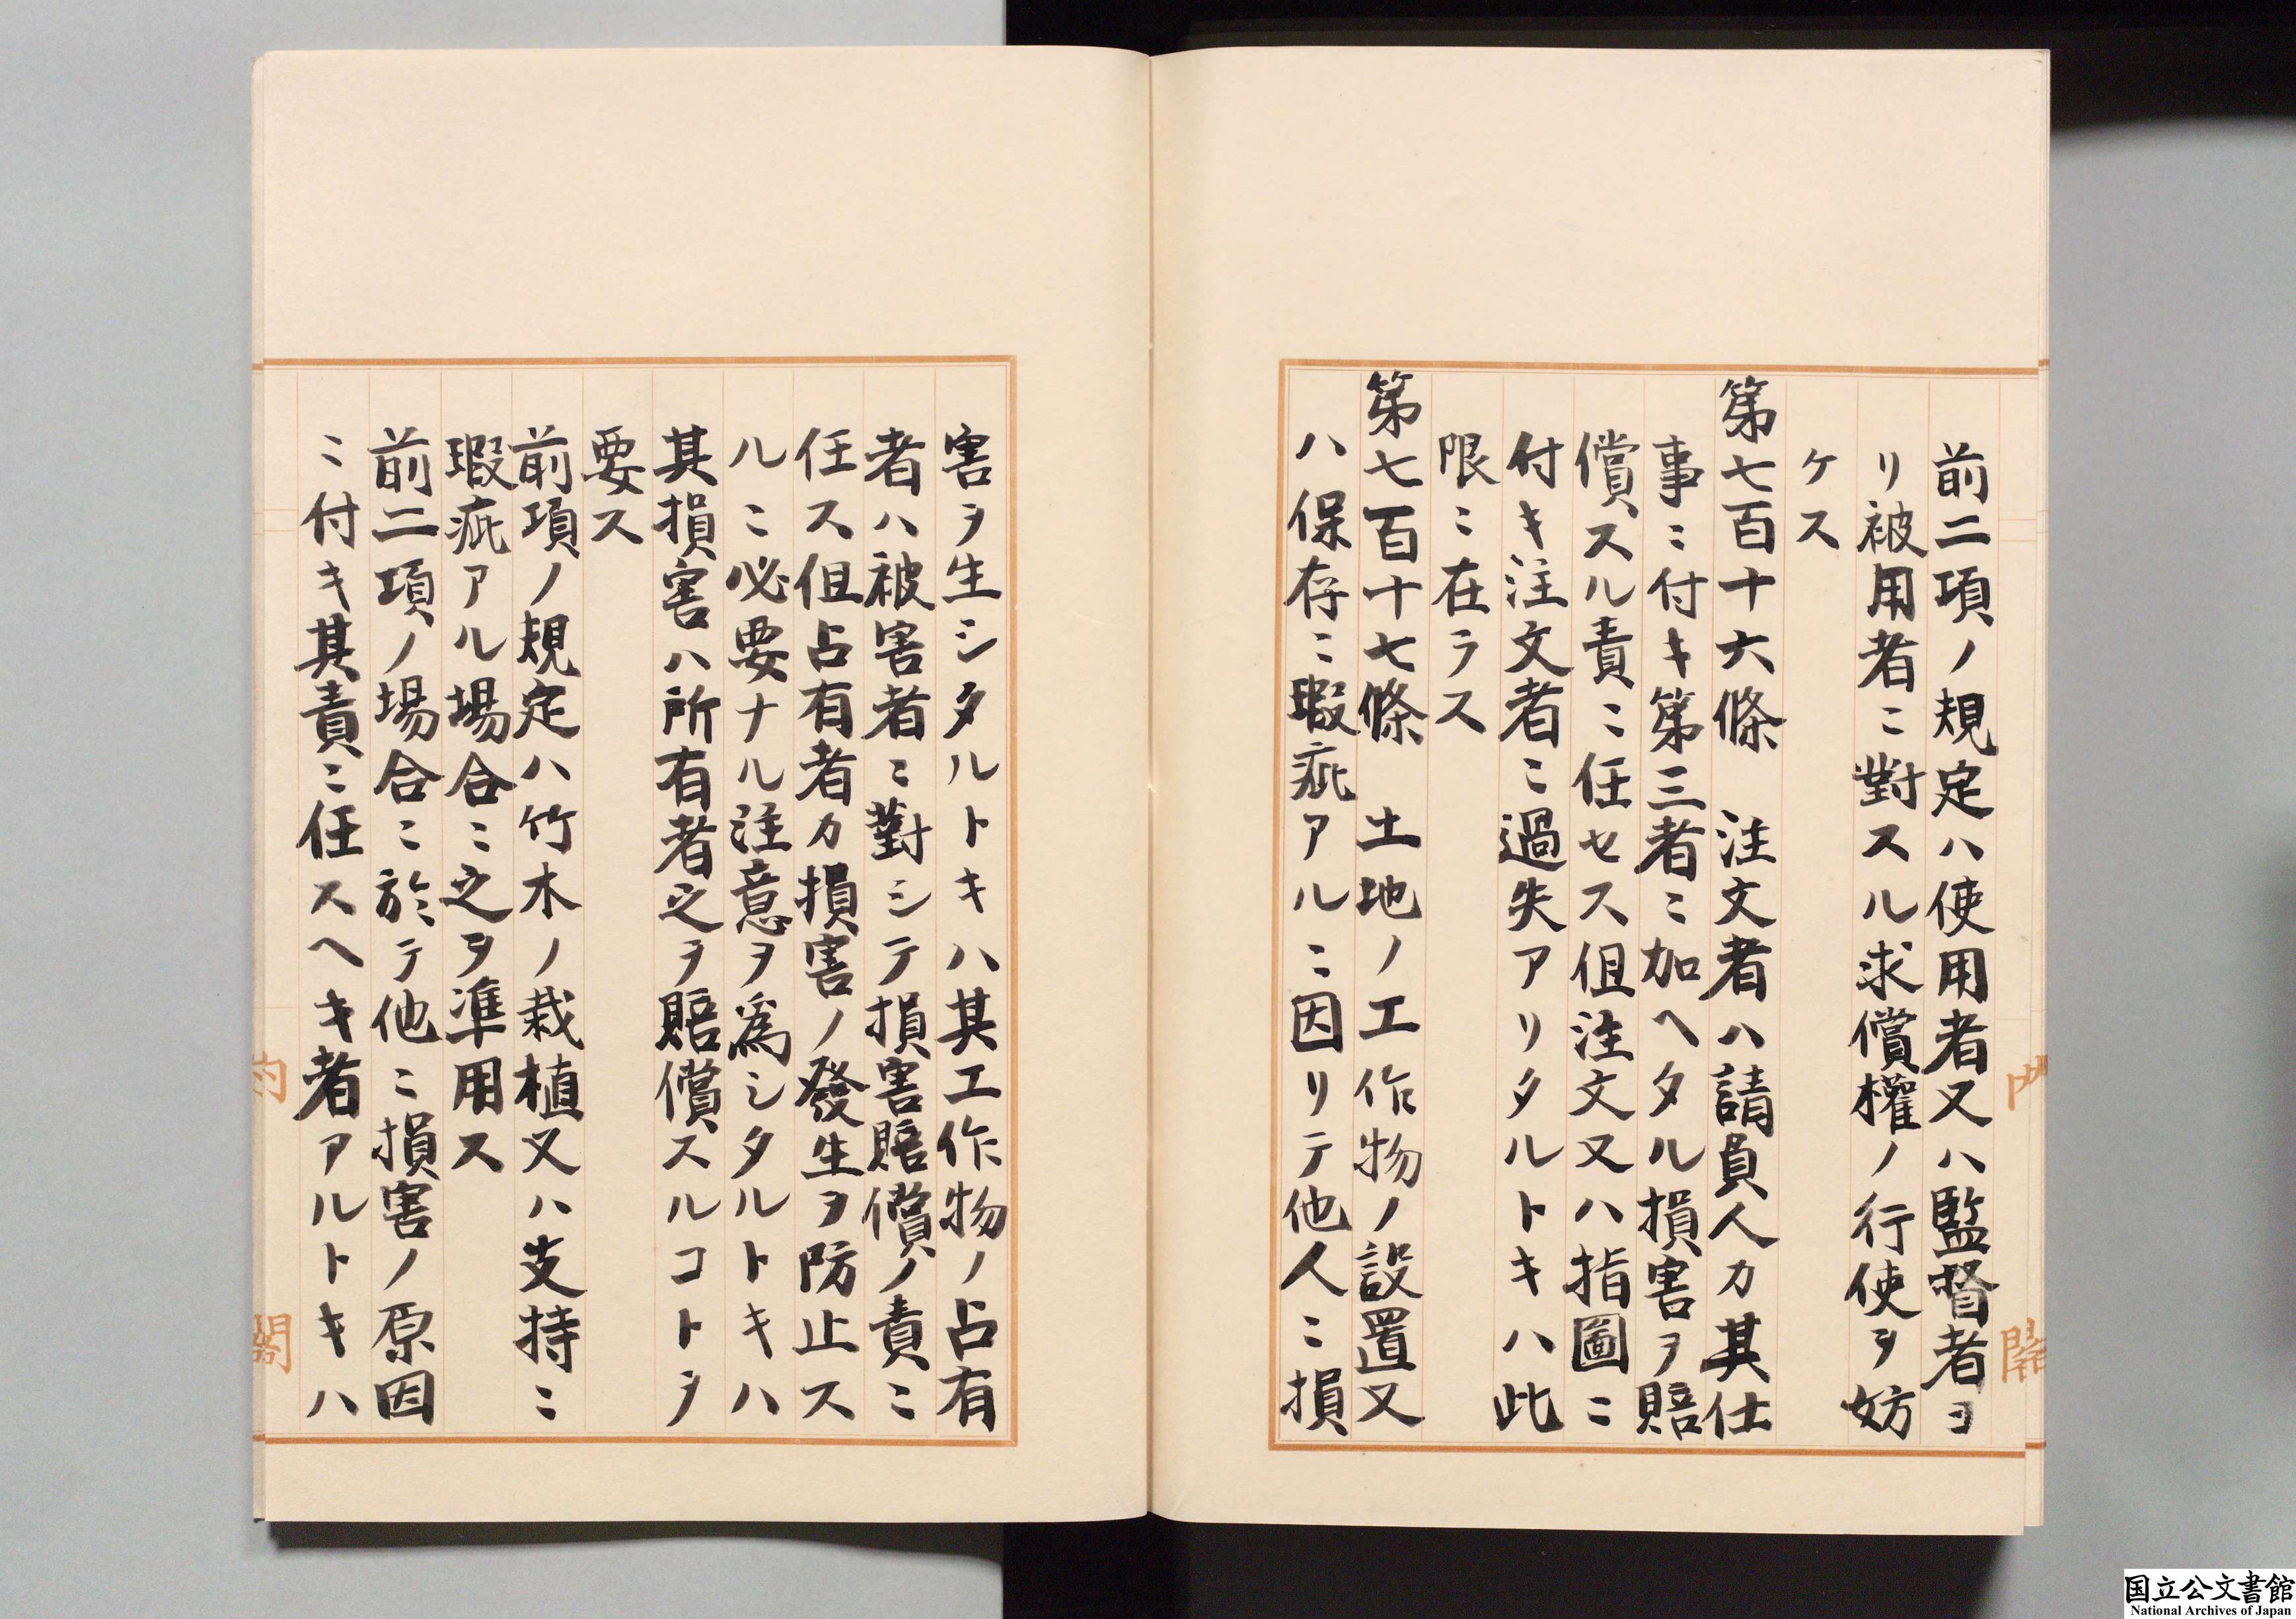 前二項ノ規定ハ使用者又ハ監督者ヨ
リ被用者ニ對スル求償權ノ行使ヲ妨
ケス
第七百十六條 注文者ハ請負人カ其仕
事ニ付キ第三者ニ加ヘタル損害ヲ賠
償スル責ニ任セス但注文又ハ指圖ニ
付キ注文者ニ過失アリタルトキハ此
限ニ在ラス
第七百十七條 土地ノ工作物ノ設置又
ハ保存ニ瑕疵アルニ因リテ他人ニ損
害ヲ生シタルトキハ其工作物ノ占有
者ハ被害者ニ對シテ損害賠償ノ責ニ
任ス但占有者カ損害ノ發生ヲ防止ス
ルニ必要ナル注意ヲ爲シタルトキハ
其損害ハ所有者之ヲ賠償スルコトヲ
要ス
前項ノ規定ハ竹木ノ栽植又ハ支持ニ
瑕疵アル場合ニ之ヲ準用ス
前二項ノ場合ニ於テ他ニ損害ノ原因
ニ付キ其責ニ任スヘキ者アルトキハ
内閣
国立公文書館
National Archives of Japan